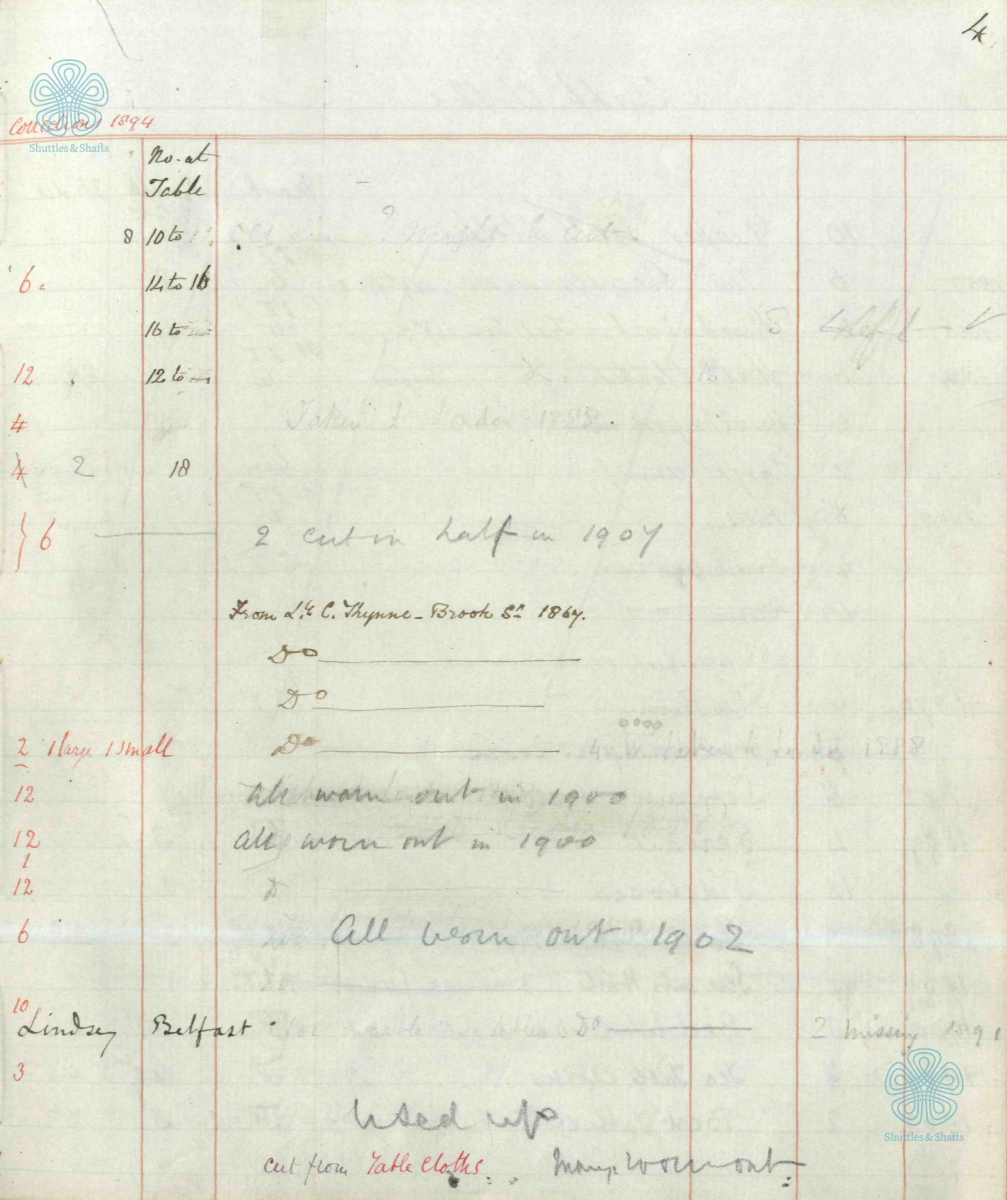 4
Corrections 1894
Shuttles & Shafts
No. at
Table
8 10 to
6. 14 to 16
16 to
8 left
12 12 to
4 Taken to London 1888.
4 2 18
6 2 cut in half in 1907
From Ly C. Thynne - Brook St 1867.
Do
Do
2 1 large 1 small Do
12 All worn out in 1900
12 All worn out in 1900
1
12 D
6 All worn out 1902
10
Lindsey Belfast. Do 2 missing 1891
3
Used up
Shuttles & Shafts
cut from Table Cloths. Many worn out